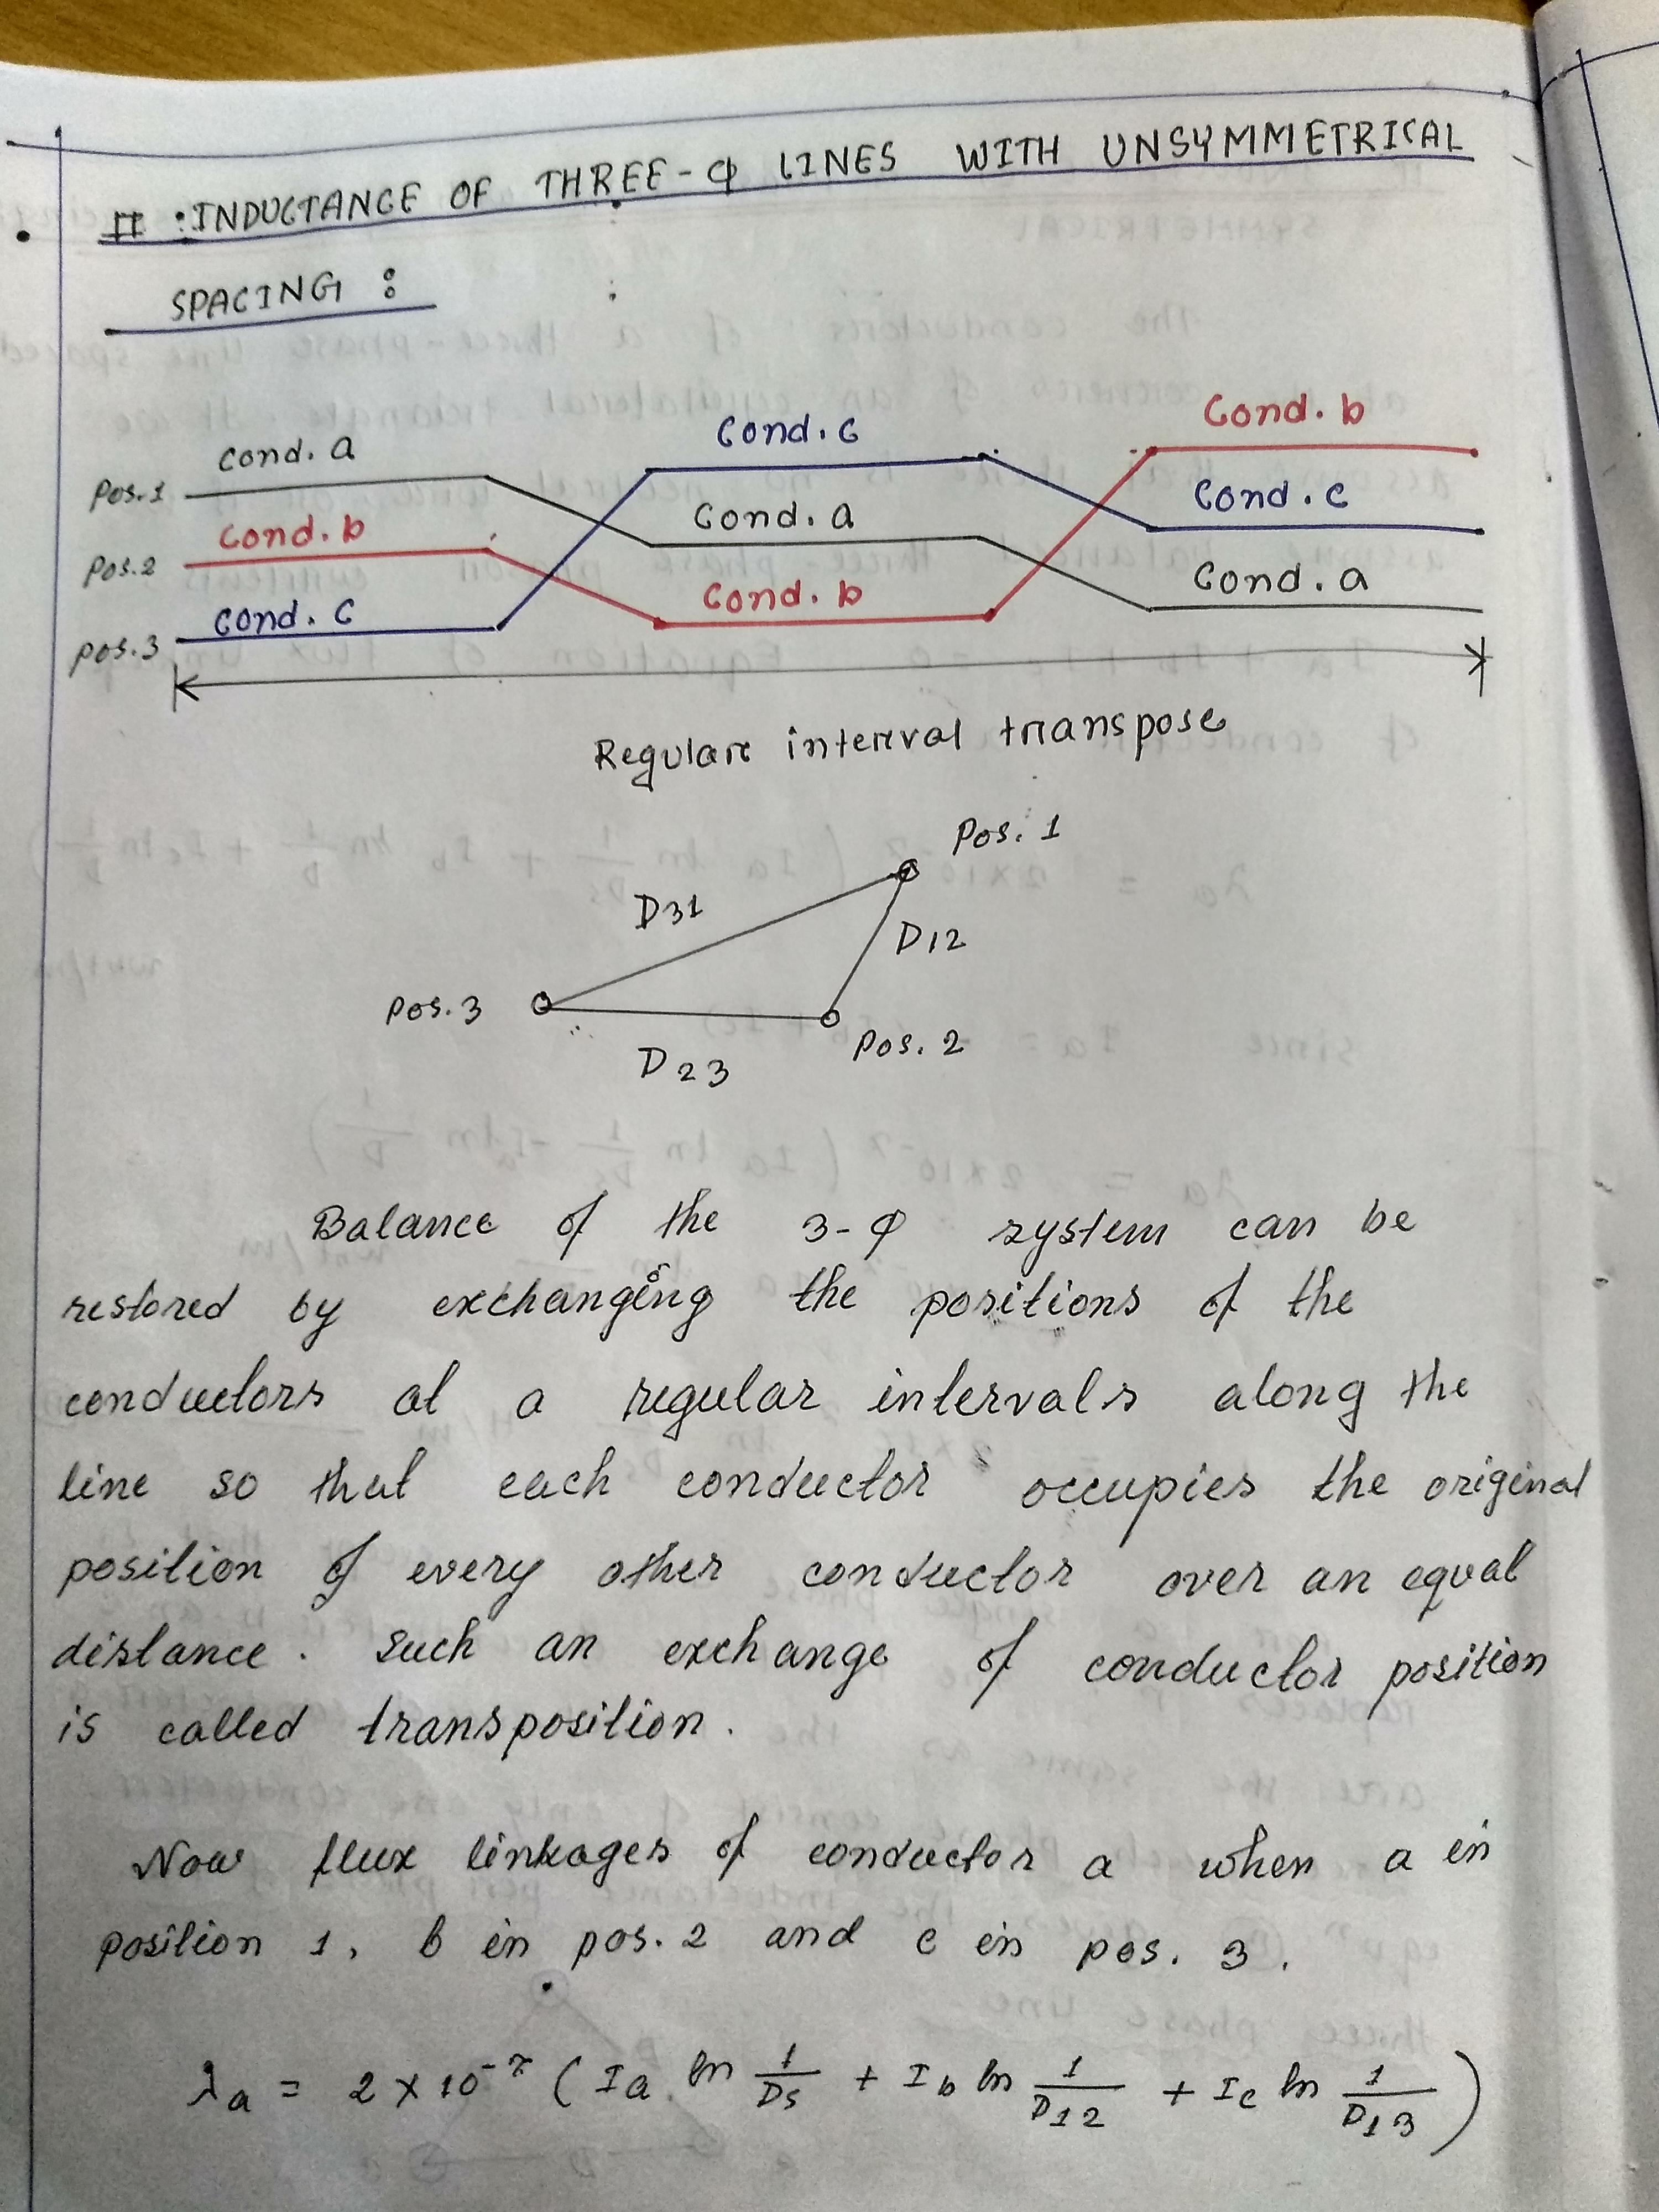 II : INDUCTANCE OF THREE-φ LINES WITH UNSYMMETRICAL
SPACING :
Cond. b
Cond. c
Cond. a
Pos. 1
Cond. c
Cond. a
Cond. b
Pos. 2
Cond. b
Cond. a
Cond. c
Pos. 3
Regular interval transpose
Pos. 1
D31
D12
Pos. 3
Pos. 2
D23
Balance of the 3-φ system can be
restored by exchanging the positions of the
conductors at a regular intervals along the
line so that each conductor occupies the original
position of every other conductor over an equal
distance. Such an exchange of conductor position
is called transposition.
Now flux linkages of conductor a when a in
position 1, b in pos. 2 and c in pos. 3.
λa = 2 × 10⁻⁷ ( Ia ln 1/Ds + Ib ln 1/D12 + Ic ln 1/D13 )